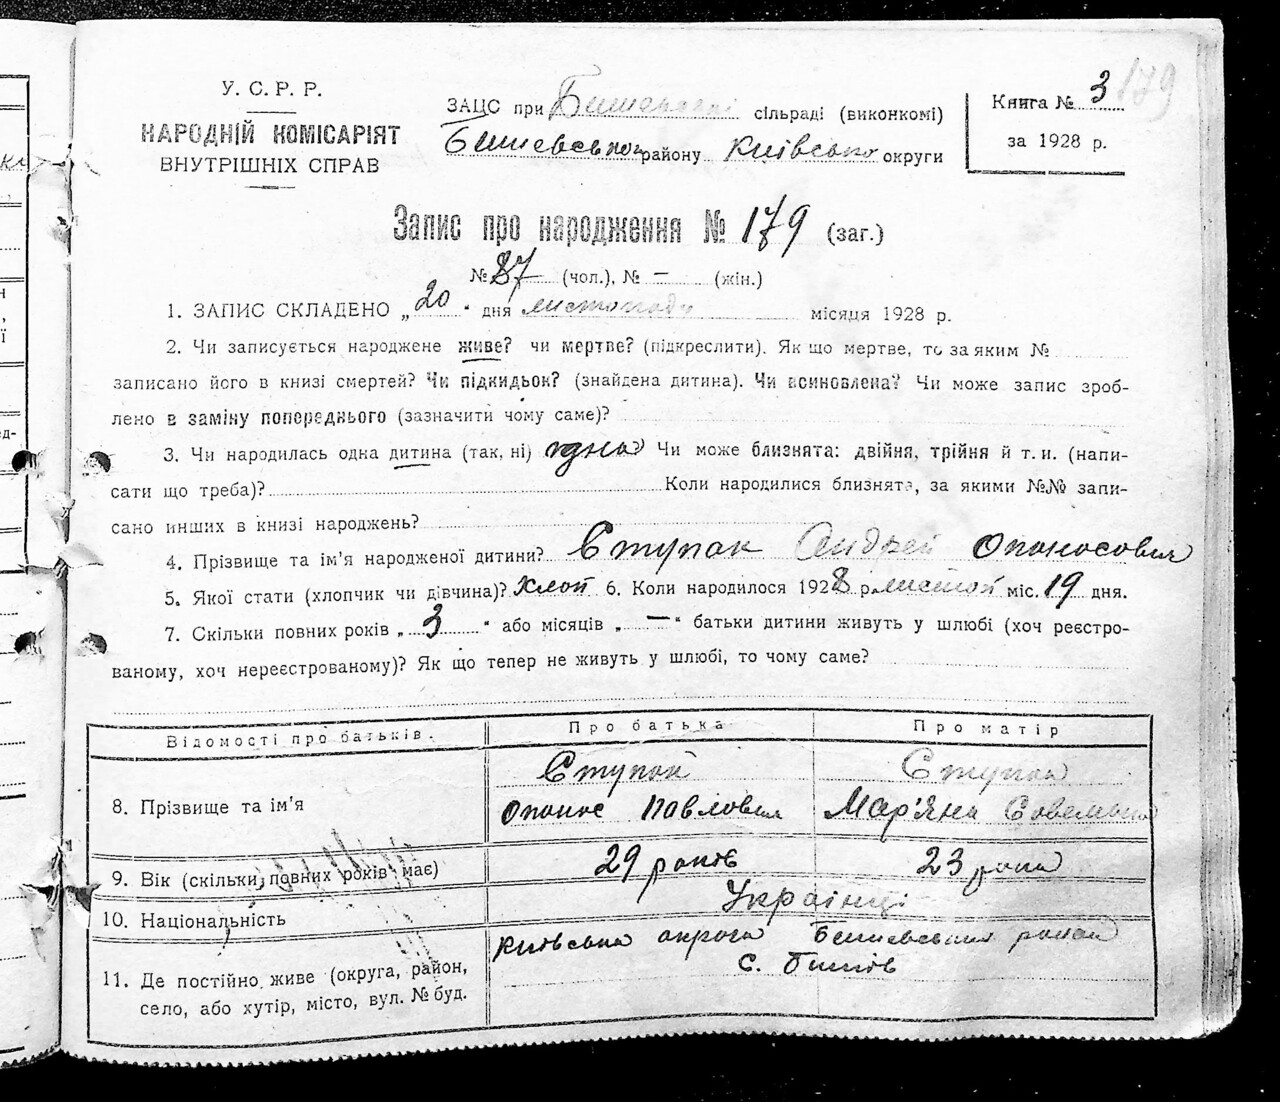 179
У. С. Р. Р.
НАРОДНІЙ КОМІСАРІЯТ
ВНУТРІШНІХ СПРАВ
ЗАЦС при сільраді (виконкомі)
району Київсько округи
Книга № 3
за 1928 р.
Запис про народження № 179 (заг.)
№ 87 (чол.), № — (жін.)
1. ЗАПИС СКЛАДЕНО „20“ дня листопада місяця 1928 р.
2. Чи записується народжене живе? чи мертве? (підкреслити). Як що мертве, то за яким №
записано його в книзі смертей? Чи підкидьок? (знайдена дитина). Чи всиновлена? Чи може запис зроб-
лено в заміну попереднього (зазначити чому саме)?
3. Чи народилась одна дитина (так, ні) одна Чи може близнята: двійня, трійня й т. и. (напи-
сати що треба)? Коли народилися близнята, за якими №№ запи-
сано инших в книзі народжень?
4. Прізвище та ім’я народженої дитини? Ступак Андрей Опанасович
5. Якої стати (хлопчик чи дівчина)? Хлоп 6. Коли народилося 1928 р. листоп міс. 19 дня.
7. Скільки повних років „3“ або місяців „—“ батьки дитини живуть у шлюбі (хоч реєстро-
ваному, хоч нереєстрованому)? Як що тепер не живуть у шлюбі, то чому саме?
Відомості про батьків. Про батька Про матір
8. Прізвище та ім’я
Ступак Ступак
Опанас Павлович Мар’яна
9. Вік (скільки повних років має) 29 років 23 роки
10. Національність Українці
11. Де постійно живе (округа, район,
село, або хутір, місто, вул. № буд.
Київська округа район
с. Бишів